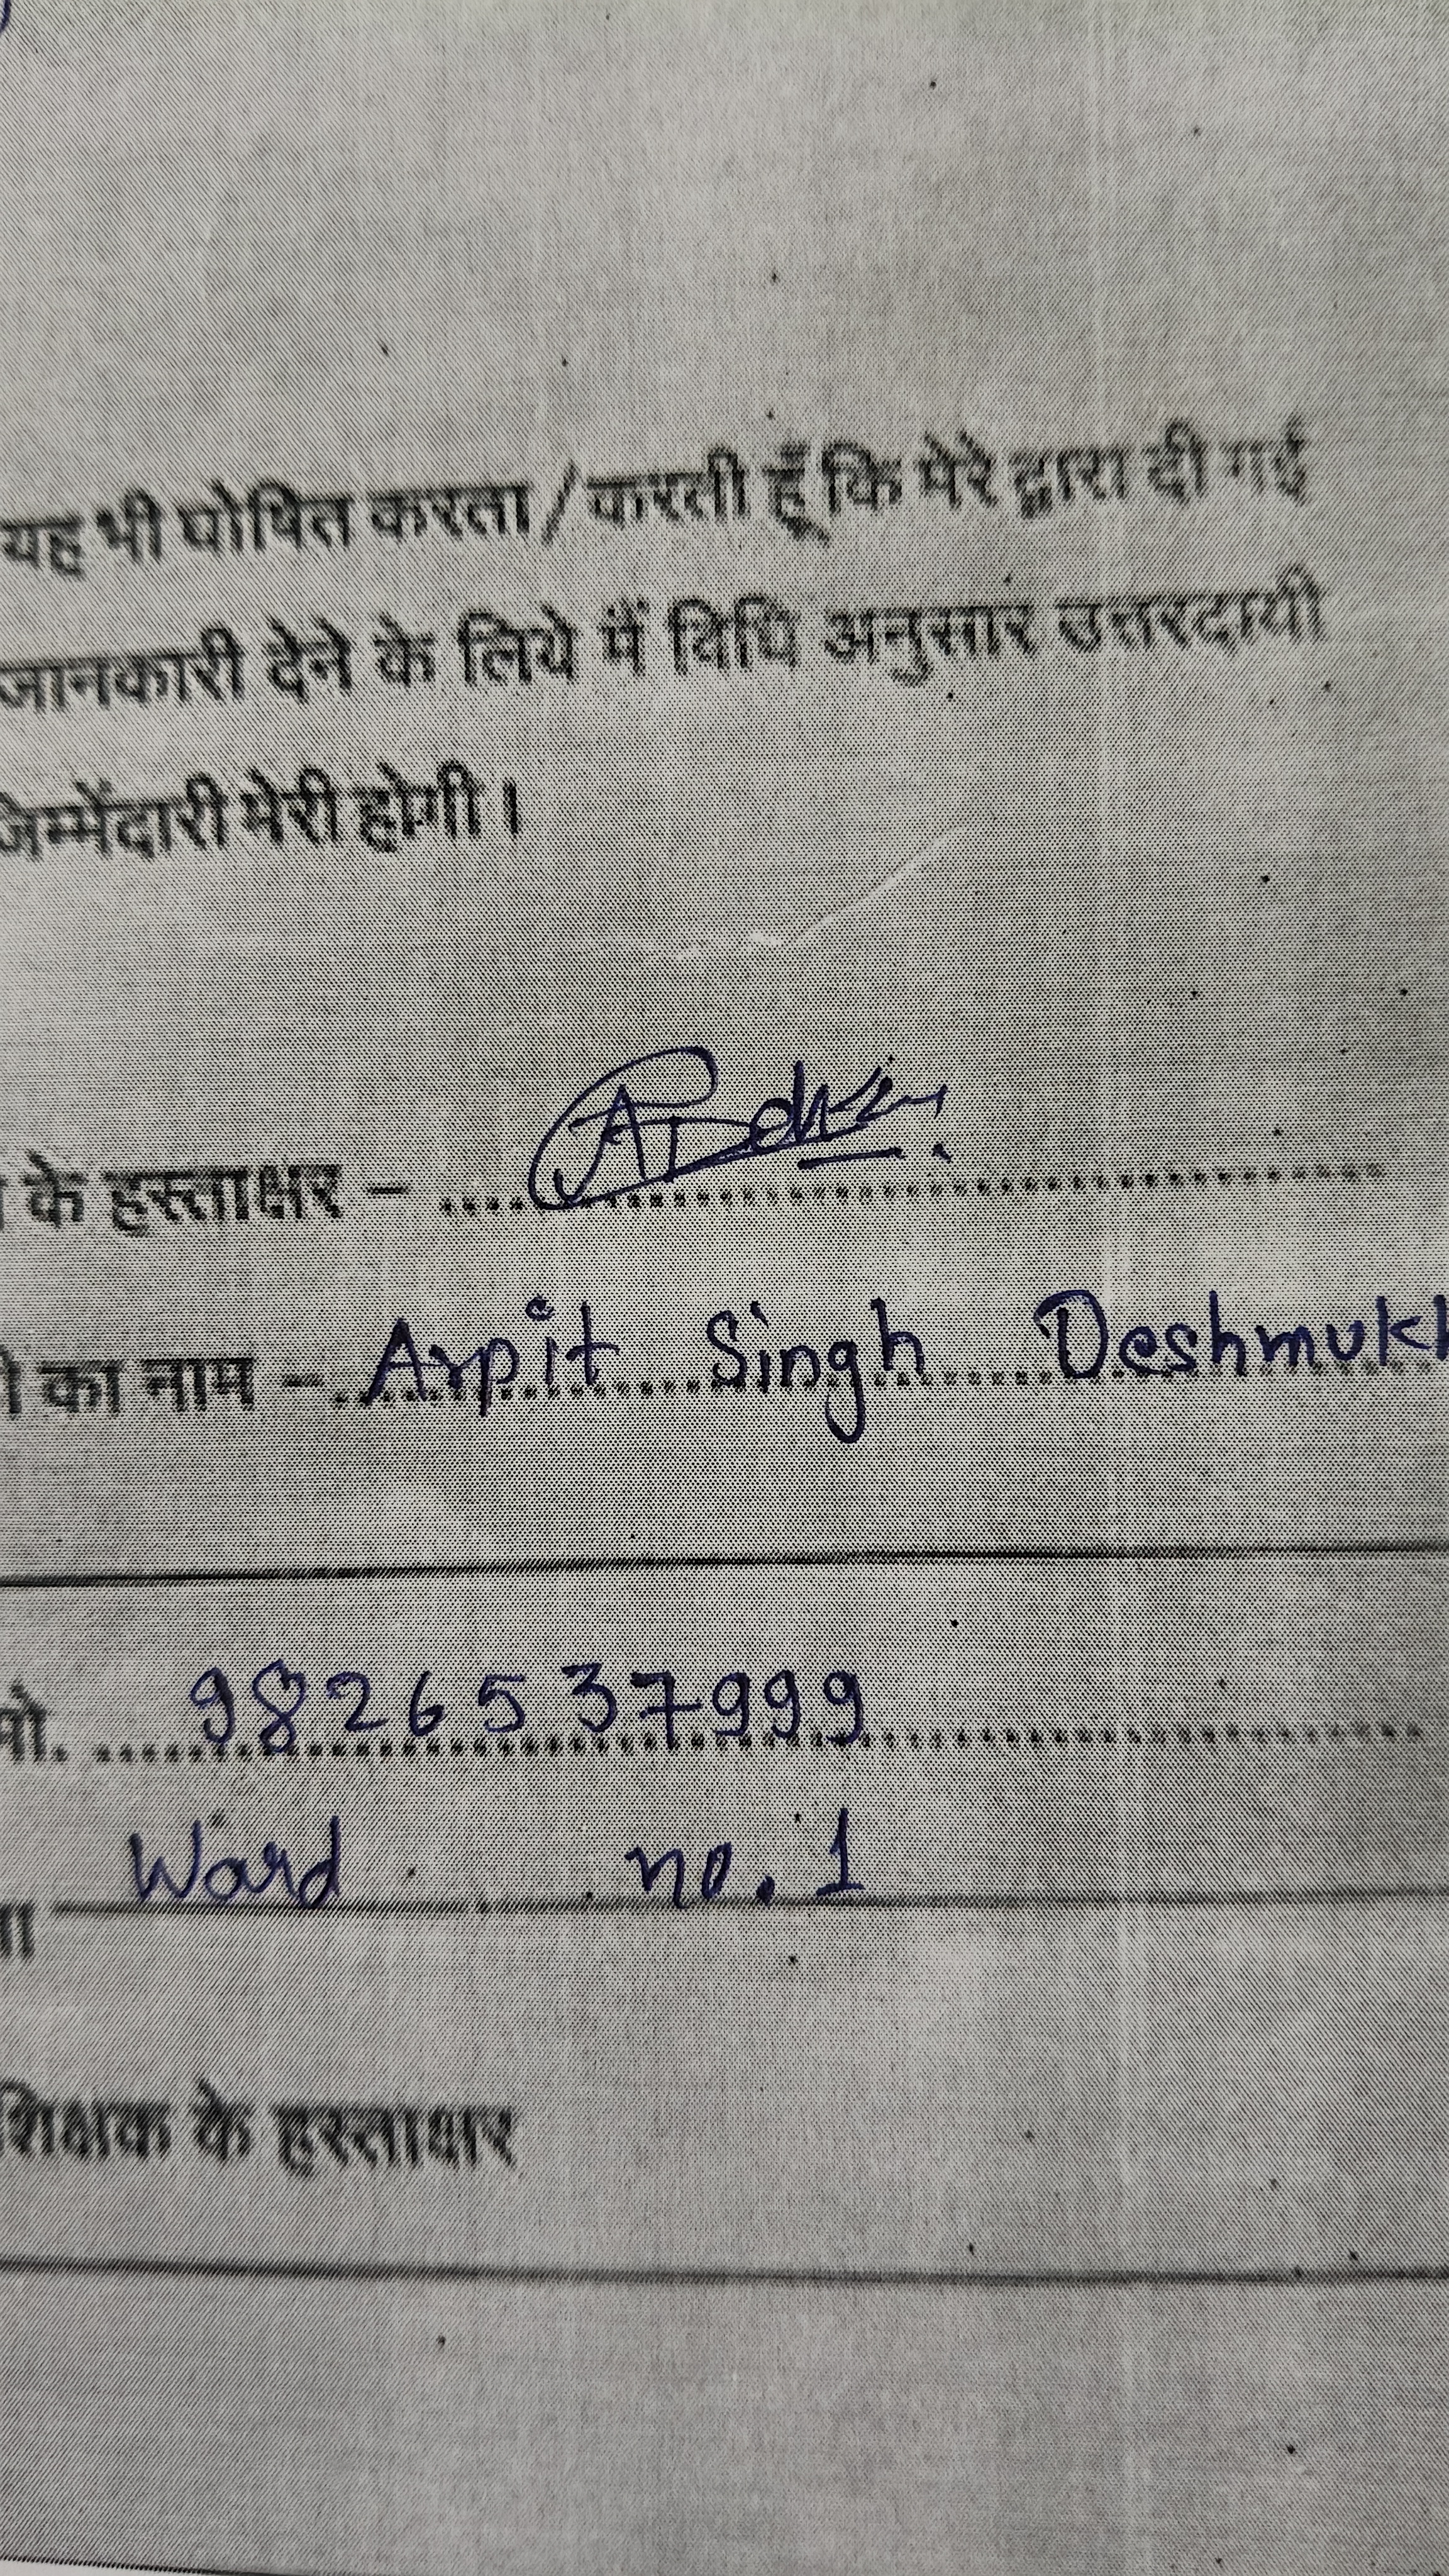 यह भी घोषित करता / करती हूँ कि मेरे द्वारा दी गई
जानकारी देने के लिये मैं विधि अनुसार उत्तरदायी
जिम्मेंदारी मेरी होगी।
के हस्ताक्षर –
का नाम – Arpit Singh Deshmukh
मो. 9826537999
Ward no. 1
शिक्षक के हस्ताक्षर